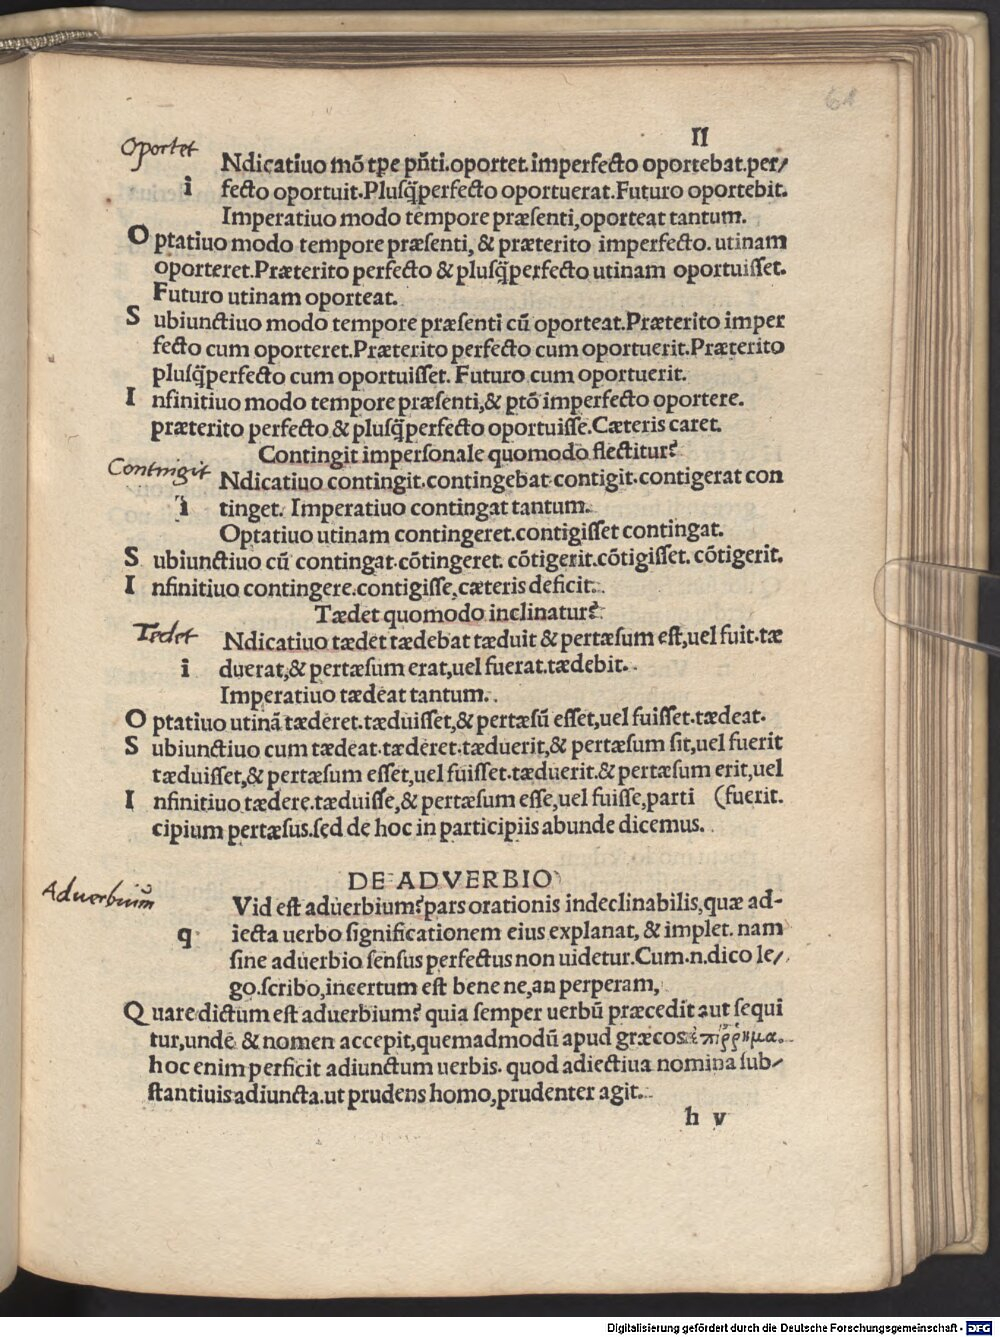 61
II
Oportet
Ndicatiuo mõ tpe pñti.oportet.imperfecto oportebat.per/
i fecto oportuit.Plusq̃perfecto oportuerat.Futuro oportebit.
Imperatiuo modo tempore præsenti,oporteat tantum.
O ptatiuo modo tempore præsenti, & præterito imperfecto. utinam
oporteret.Præterito perfecto & plusq̃perfecto utinam oportuisset.
Futuro utinam oporteat.
S ubiunctiuo modo tempore præsenti cũ oporteat.Præterito imper
fecto cum oporteret.Præterito perfecto cum oportuerit.Præterito
plusq̃perfecto cum oportuisset. Futuro cum oportuerit.
I nfinitiuo modo tempore præsenti,& ptõ imperfecto oportere.
præterito perfecto & plusq̃perfecto oportuisse.Cæteris caret.
Contingit impersonale quomodo flectitur?
Contingit
Ndicatiuo contingit.contingebat contigit.contigerat con
i tinget. Imperatiuo contingat tantum.
Optatiuo utinam contingeret.contigisset contingat.
S ubiunctiuo cũ contingat.cõtingeret. cõtigerit.cõtigisset. cõtigerit.
I nfinitiuo contingere.contigisse,cæteris deficit.
Tædet quomodo inclinatur?
Tedet
Ndicatiuo tædet tædebat tæduit & pertæsum est,uel fuit.tæ
i duerat,& pertæsum erat,uel fuerat.tædebit.
Imperatiuo tædeat tantum.
O ptatiuo utinã tæderet.tæduisset,& pertæsũ esset,uel fuisset.tædeat.
S ubiunctiuo cum tædeat.tæderet.tæduerit,& pertæsum sit,uel fuerit
tæduisset,& pertæsum esset,uel fuisset.tæduerit.& pertæsum erit,uel
I nfinitiuo tædere.tæduisse,& pertæsum esse,uel fuisse,parti (fuerit.
cipium pertæsus.sed de hoc in participiis abunde dicemus.
DE ADVERBIO
Aduerbiũm
Vid est aduerbium?pars orationis indeclinabilis,quæ ad-
q iecta uerbo significationem eius explanat, & implet. nam
sine aduerbio sensus perfectus non uidetur.Cum.n.dico le/
go.scribo,incertum est bene ne,an perperam,
Q uare dictum est aduerbium? quia semper uerbũ præcedit aut sequi
tur,unde & nomen accepit,quemadmodũ apud græcos ἐπίῤῥημα.
hoc enim perficit adiunctum uerbis. quod adiectiua nomina sub/
stantiuis adiuncta.ut prudens homo,prudenter agit.
h v
Digitalisierung gefördert durch die Deutsche Forschungsgemeinschaft - DFG